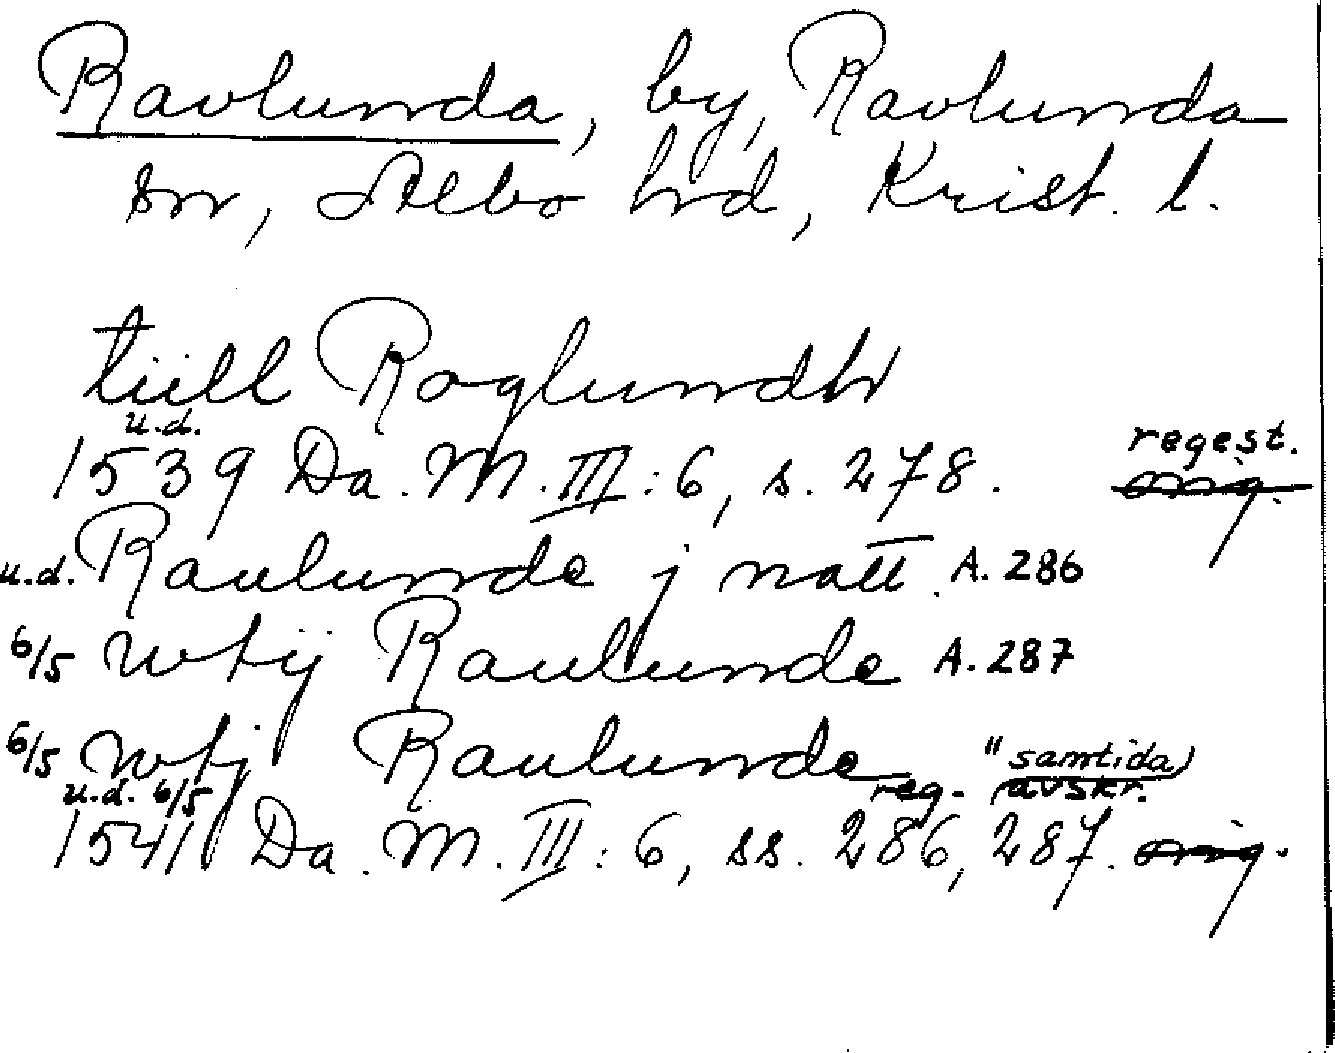 Ravlunda, by, Ravlunda
sn, Albo hrd, Krist. l.
tiill Roglundh
u.d.
1539 Da. M. III:6, s. 278. regest. orig.
u.d. Raulunde j natt. A. 286
6/5 wtij Raulunde A. 287
6/5 wtj Raulunde
u.d. 6/5 reg. "samtida) avskr.
1541 Da. M. III:6, ss. 286, 287. orig.